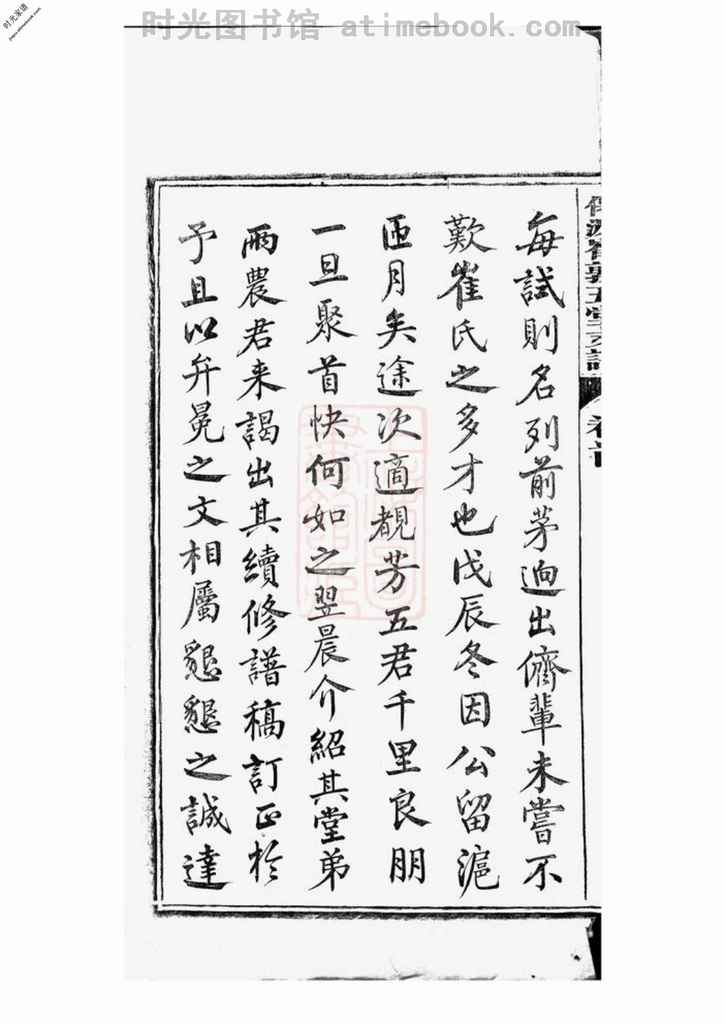 时光图书馆 atimebook.com
时光家谱
每試則名列前茅迥出儕輩未嘗不
歎崔氏之多才也戊辰冬因公留滬
匝月矣途次適覩芳五君千里良朋
一旦聚首快何如之翌晨介紹其堂弟
雨農君来謁出其續修譜稿訂正於
予且以弁冕之文相屬懇懇之誠達